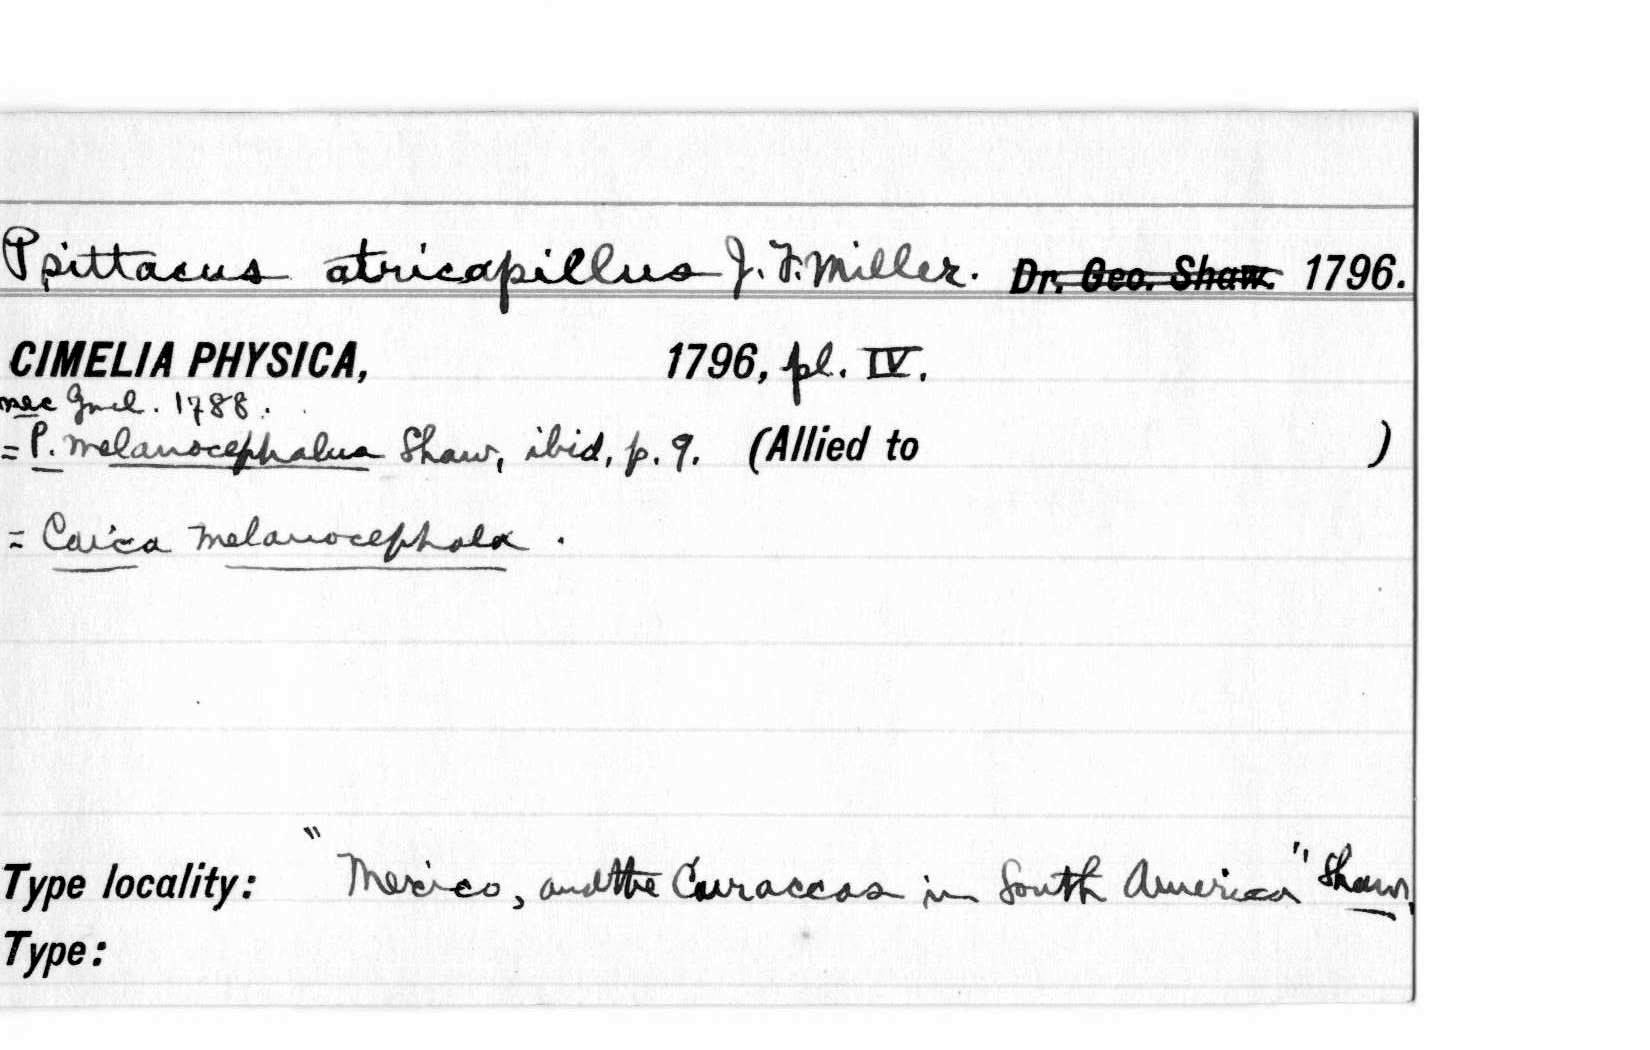 Psittacus atricapillus J. F. Miller. Dr. Geo. Shaw. 1796.
CIMELIA PHYSICA, 1796, pl. IV.
nec Gmel. 1788.
= P. melanocephalus Shaw, ibid, p. 9. (Allied to )
= Caica melanocephala.
Type locality: "Mexico, and the Carraccas in South America" Shaw,
Type: